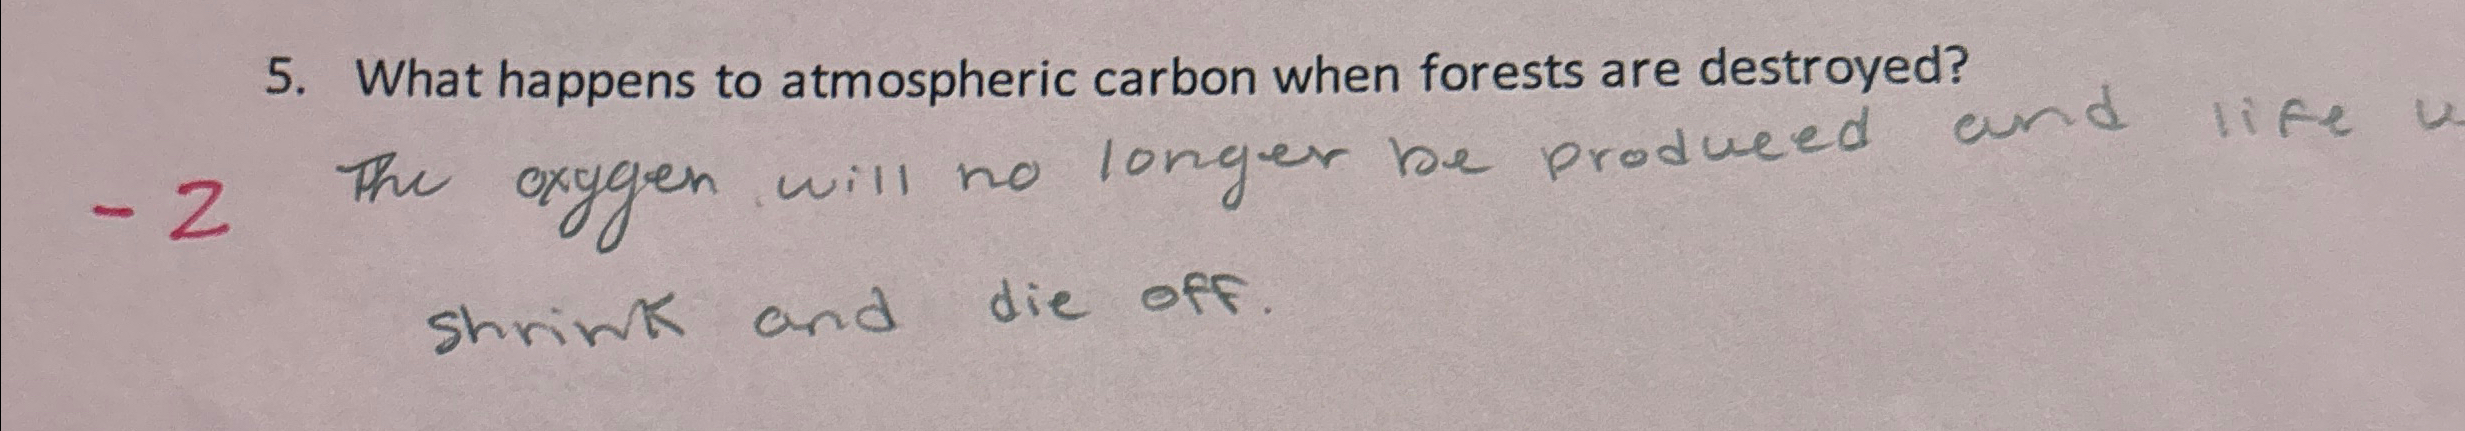 5. What happens to atmospheric carbon when forests are destroyed?
The oxygen will no longer be produced and life
- 2
shrink and die off.